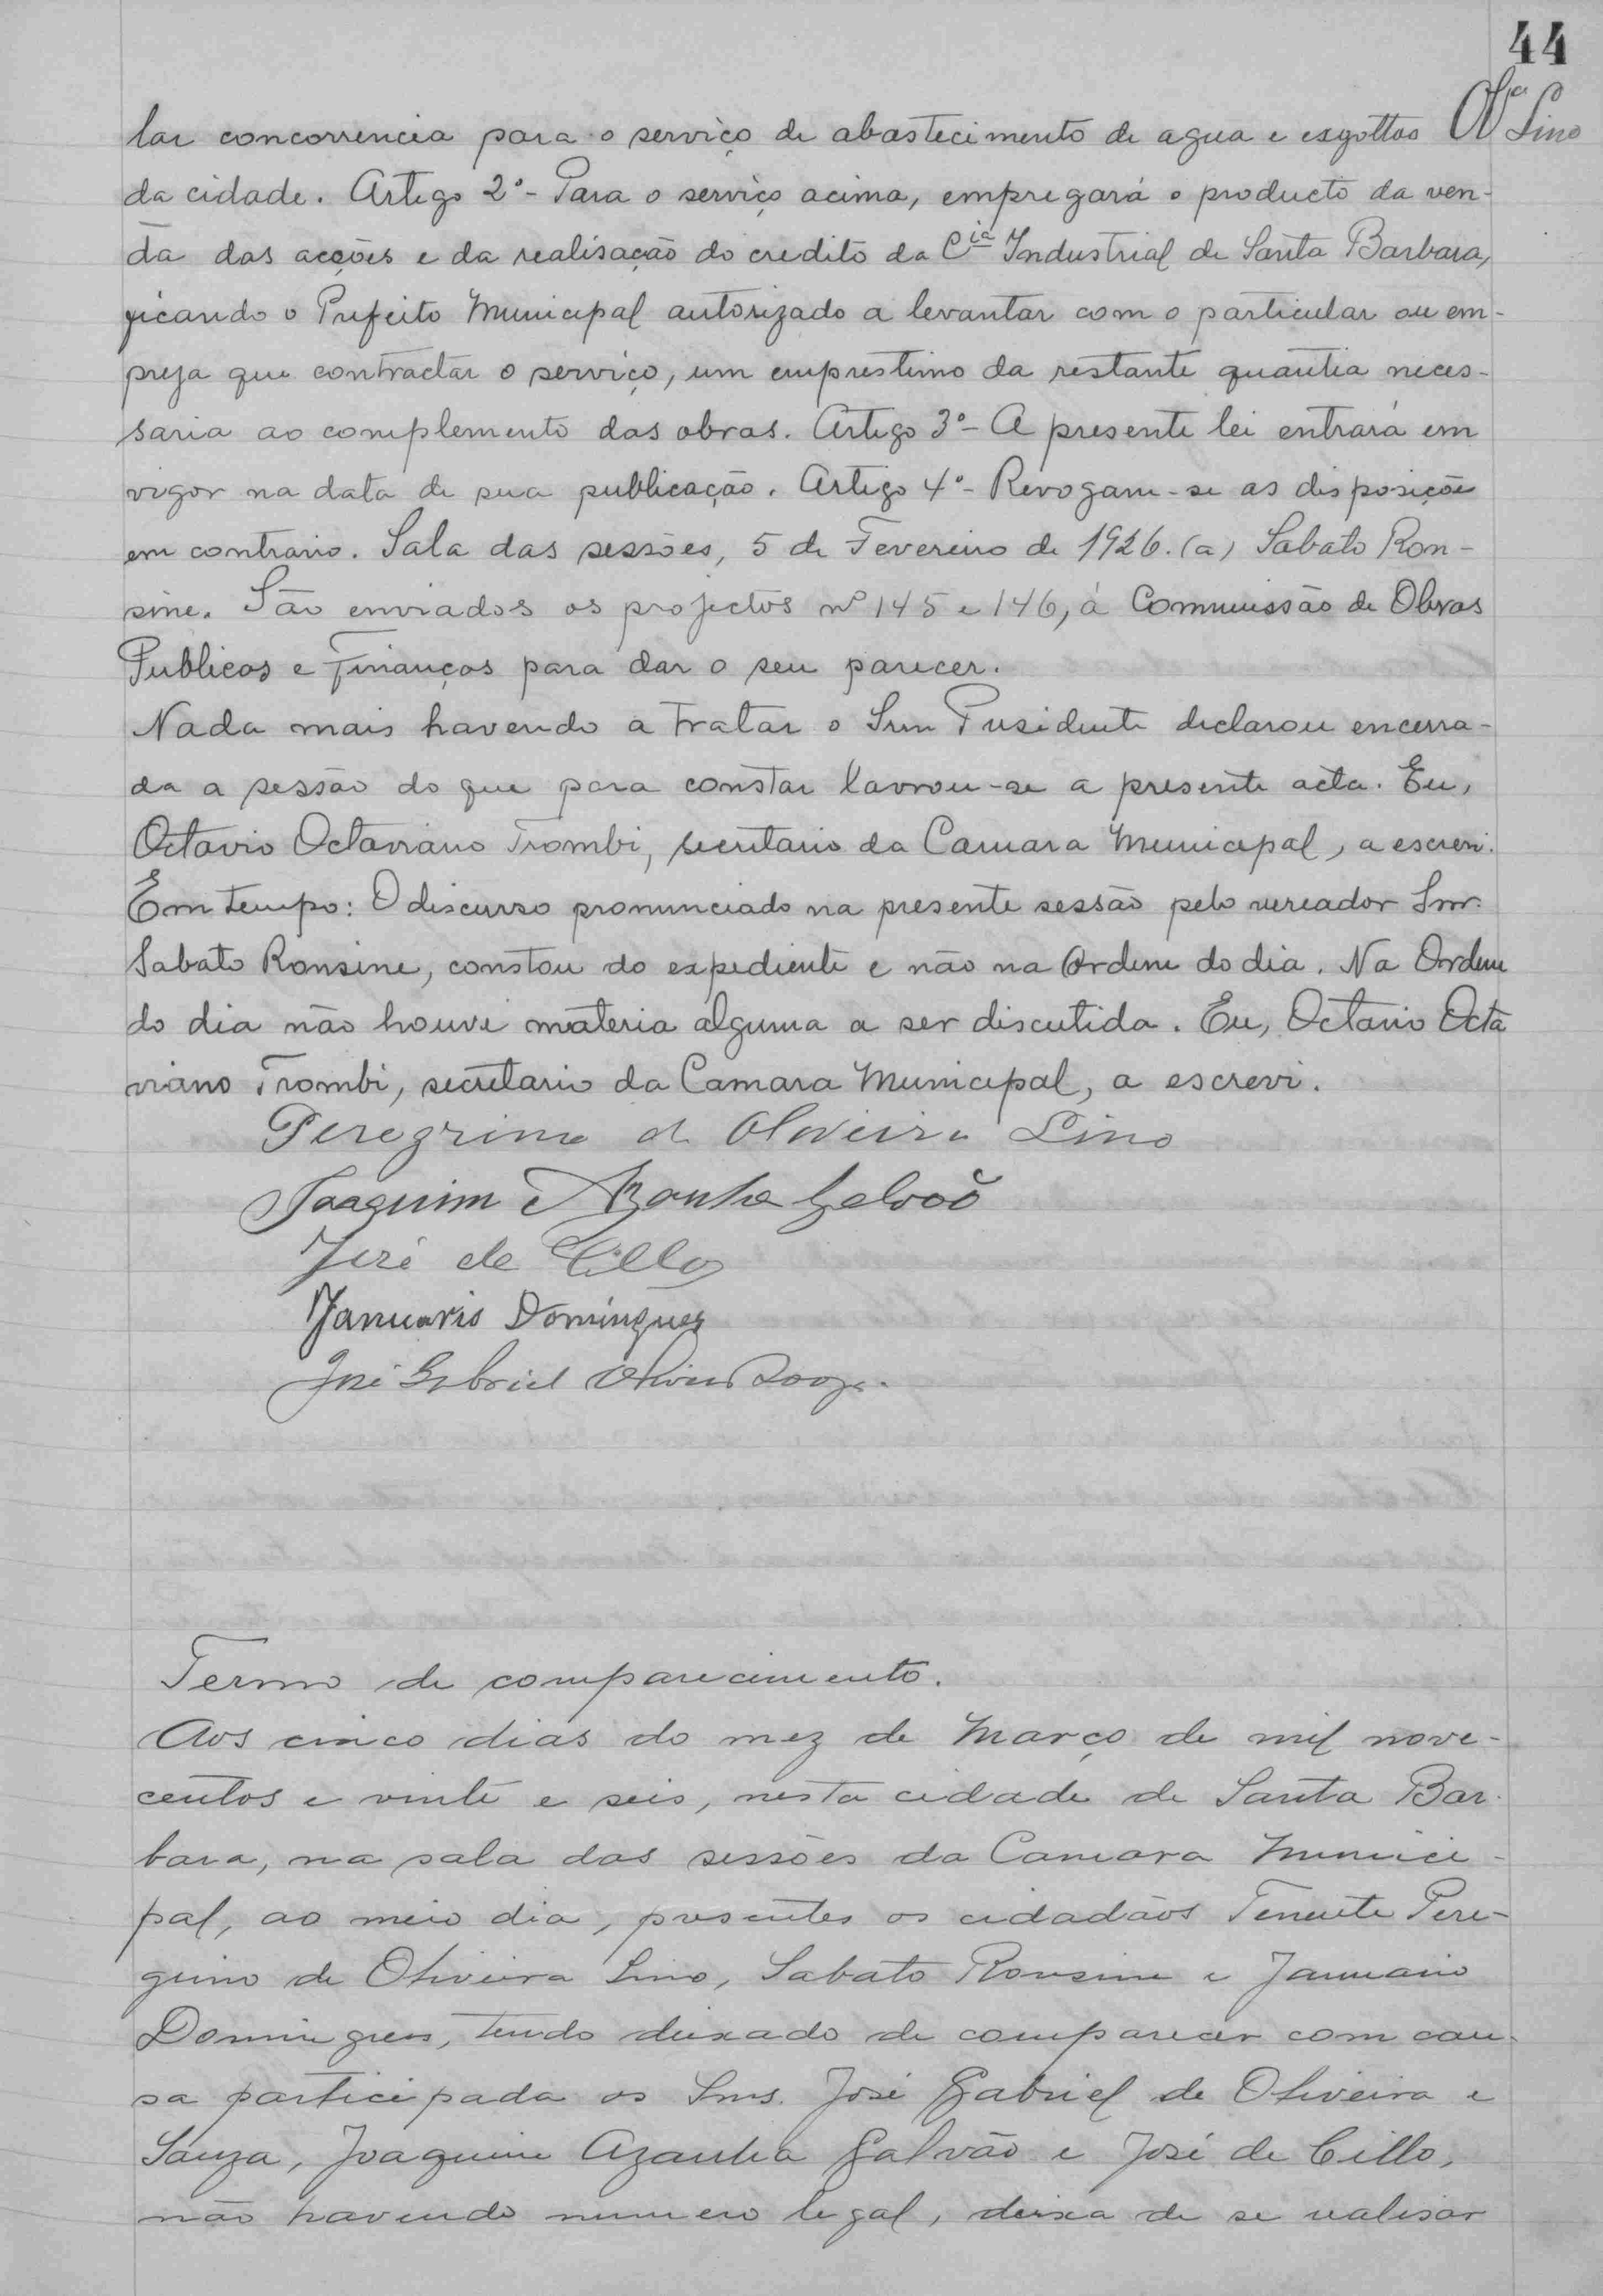 44
Olvra Lino
lar concorrencia para o serviço de abastecimento de agua e esgottos
da cidade. Artigo 2º - Para o serviço acima, empregará o producto da ven-
da das acções e da realisação do credito da Cia Industrial de Santa Barbara,
ficando o Prefeito Municipal autorizado a levantar com o particular ou em-
preza que contractar o serviço, um emprestimo da restante quantia neces-
saria ao complemento das obras. Artigo 3º - A presente lei entrará em
vigor na data de sua publicação. Artigo 4º - Revogam-se as disposições
em contrario. Sala das sessões, 5 de Fevereiro de 1926. (a) Sabato Ron-
sine. São enviados os projectos nº 145 e 146, á Commissão de Obras
Publicas e Finanças para dar o seu parecer.
Nada mais havendo a tratar o Snr. Presidente declarou encerra-
da a sessão do que para constar lavrou-se a presente acta. Eu,
Octavio Octaviano Trombi, secretario da Camara Municipal, a escrevi.
Em tempo: O discurso pronunciado na presente sessão pelo vereador Snr.
Sabato Ronsine, constou do expediente e não na Ordem do dia. Na Ordem
do dia não houve materia alguma a ser discutida. Eu, Octavio Octa
viano Trombi, secretario da Camara Municipal, a escrevi.
Peregrino de Oliveira Lino
Joaquim Azanha Galvão
José de Cillo
Januario Domingues
José Gabriel Oliveira Souza.
Termo de comparecimento.
Aos cinco dias do mez de Março de mil nove-
centos e vinte e seis, nesta cidade de Santa Bar-
bara, na sala das sessões da Camara Munici-
pal, ao meio dia, presentes os cidadãos Tenente Pere-
grino de Oliveira Lino, Sabato Ronsine e Januario
Domingues, tendo deixado de comparecer com cau-
sa participada os Snrs. José Gabriel de Oliveira e
Souza, Joaquim Azanha Galvão e José de Cillo,
não havendo numero legal, deixa de se realisar